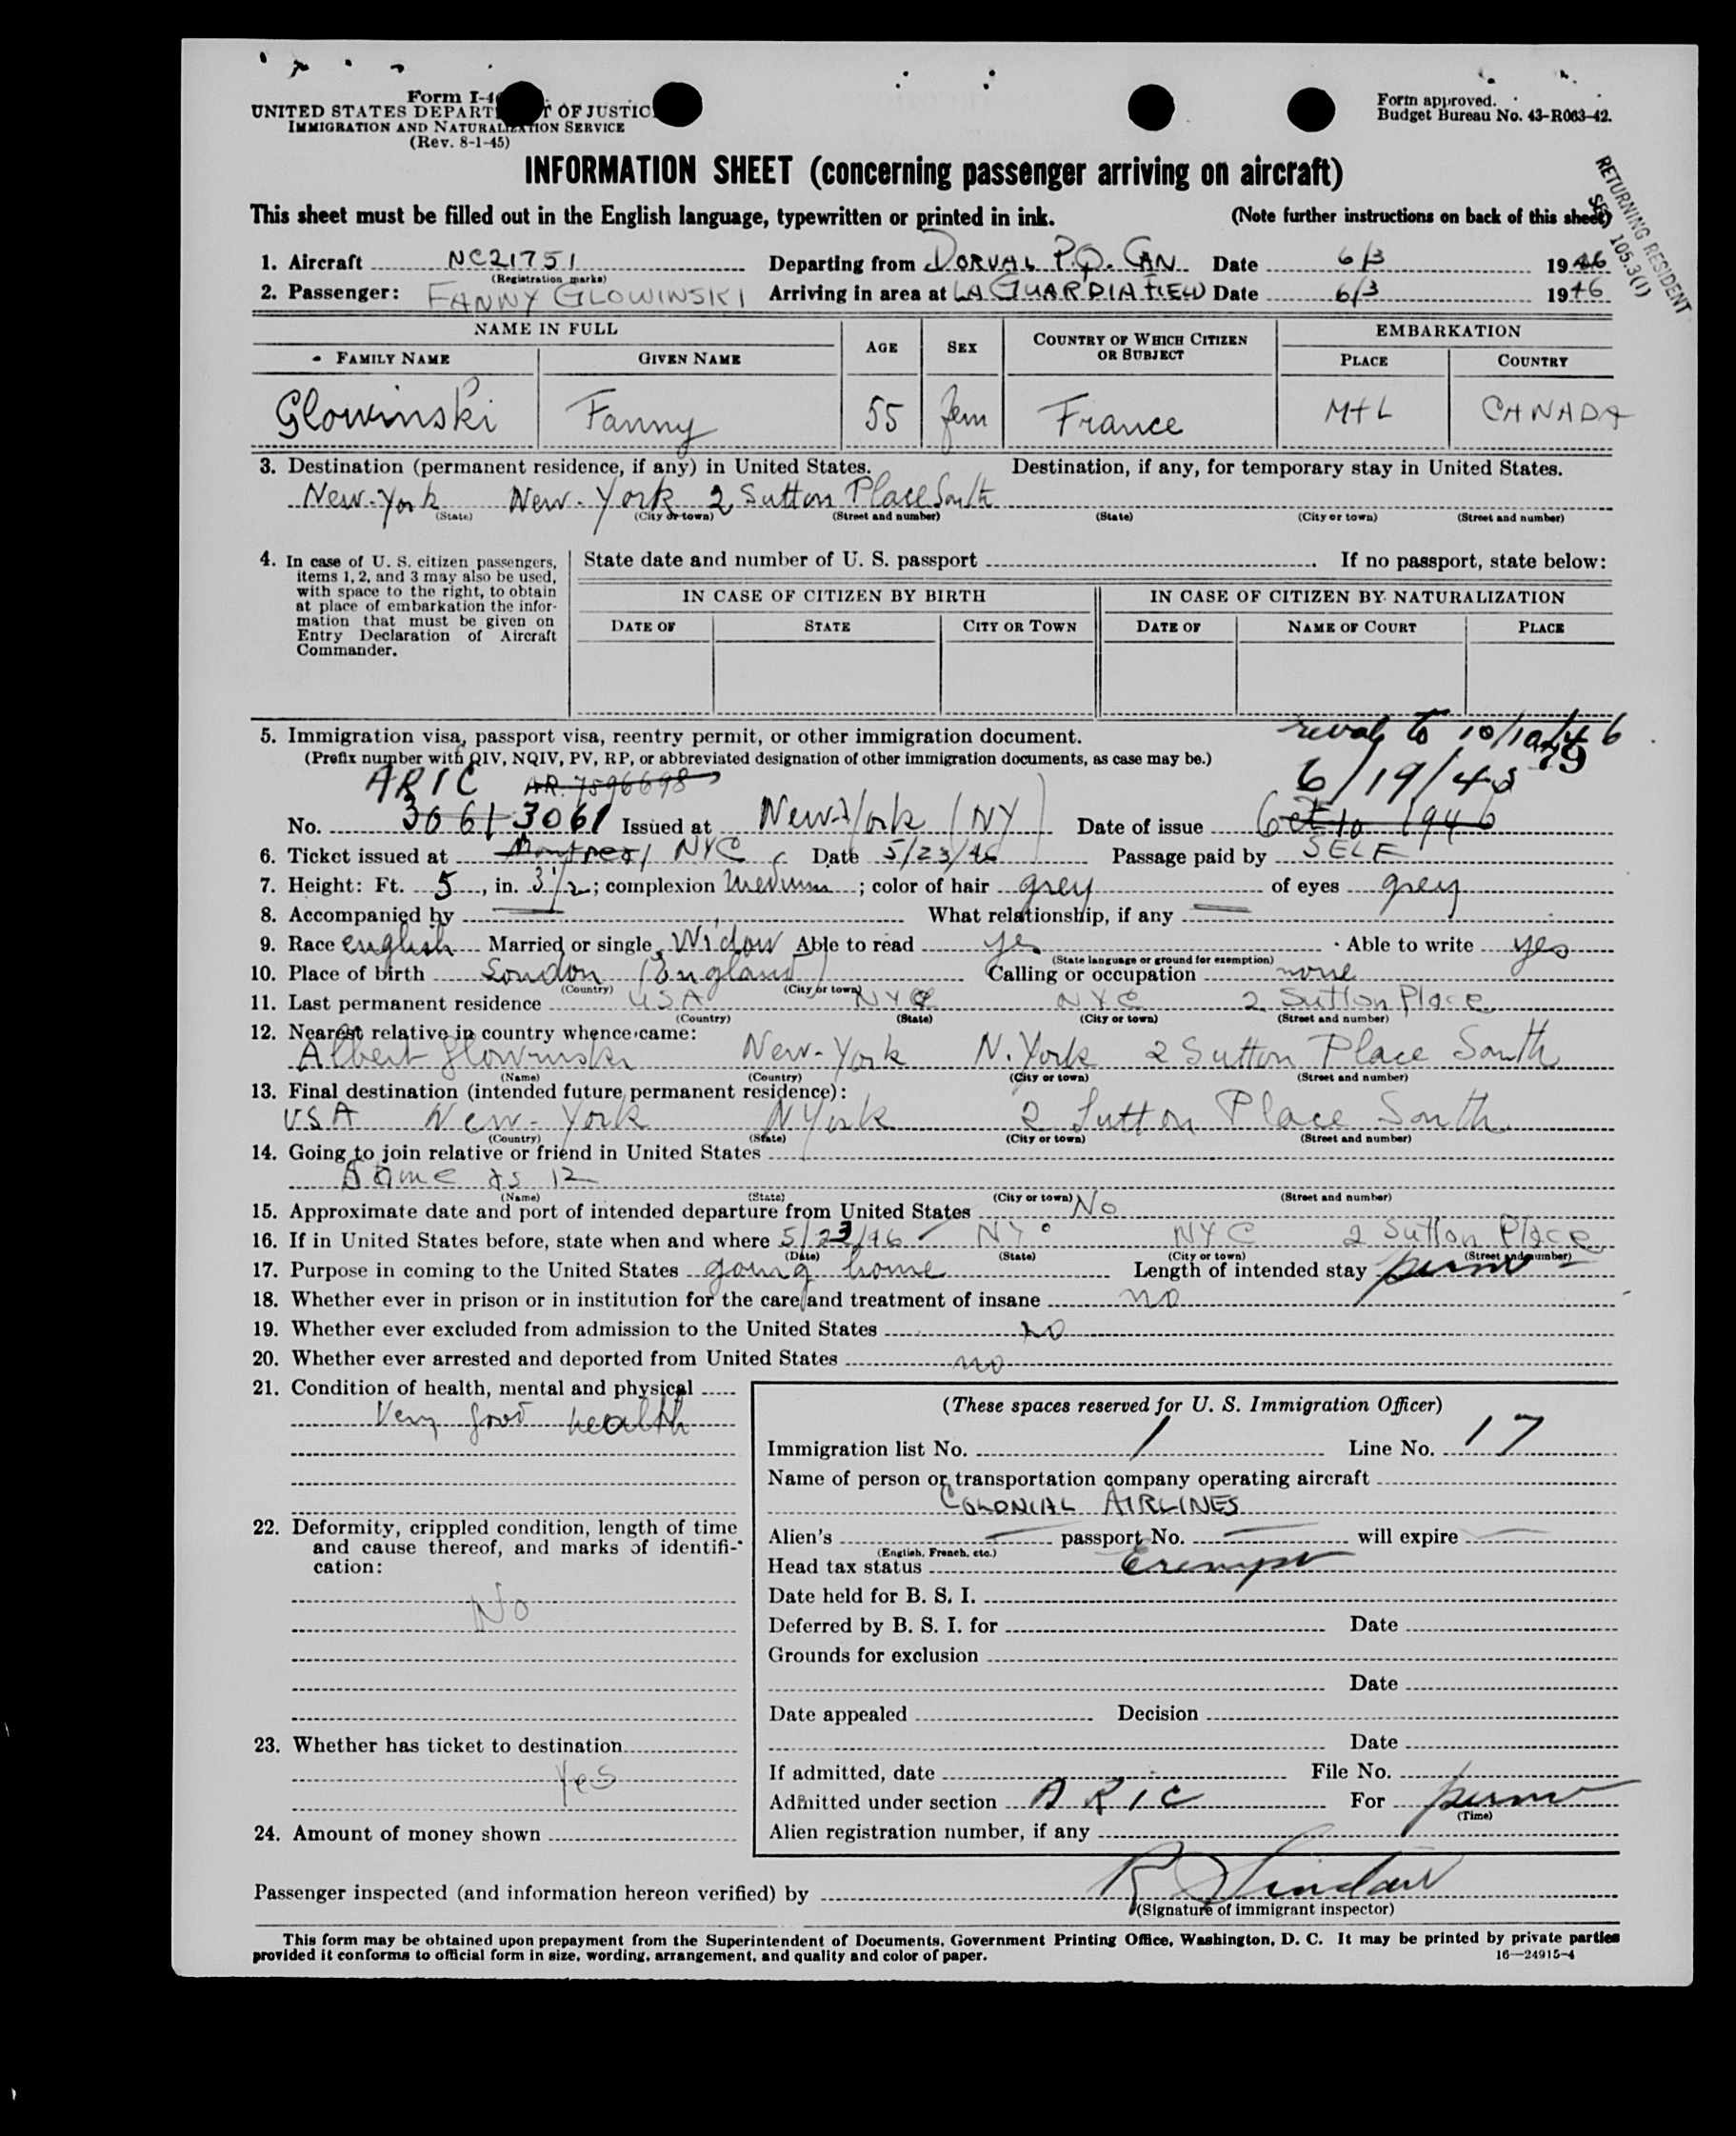 Form I-4
UNITED STATES DEPART T OF JUSTIC
IMMIGRATION AND NATURALIZATION SERVICE
(Rev. 8-1-45)
Form approved.
Budget Bureau No. 43-R063-42.
INFORMATION SHEET (concerning passenger arriving on aircraft)
This sheet must be filled out in the English language, typewritten or printed in ink. (Note further instructions on back of this sheet)
RETURNING RESIDENT
SEC 105.3(1)
1. Aircraft NC21751 Departing from DORVAL P.Q. CAN Date 6/3 1946
(Registration marks)
2. Passenger: FANNY GLOWINSKI Arriving in area at LA GUARDIA FIELD Date 6/3 1946
NAME IN FULL AGE SEX COUNTRY OF WHICH CITIZEN OR SUBJECT EMBARKATION
FAMILY NAME GIVEN NAME PLACE COUNTRY
Glowinski Fanny 55 fem France MtL CANADA
3. Destination (permanent residence, if any) in United States. Destination, if any, for temporary stay in United States.
New-York New-York 2 Sutton Place South
(State) (City or town) (Street and number) (State) (City or town) (Street and number)
4. In case of U. S. citizen passengers, items 1, 2, and 3 may also be used, with space to the right, to obtain at place of embarkation the information that must be given on Entry Declaration of Aircraft Commander.
State date and number of U. S. passport . If no passport, state below:
IN CASE OF CITIZEN BY BIRTH IN CASE OF CITIZEN BY NATURALIZATION
DATE OF STATE CITY OR TOWN DATE OF NAME OF COURT PLACE
5. Immigration visa, passport visa, reentry permit, or other immigration document.
to 10/10/46
(Prefix number with QIV, NQIV, PV, RP, or abbreviated designation of other immigration documents, as case may be.)
79
ARIC AR. 7596698 6/19/45
No. 3061 3061 Issued at New-York (NY) Date of issue Oct 10 1946
6. Ticket issued at Montreal NYC Date 5/23/46 Passage paid by SELF
7. Height: Ft. 5, in. 3 1/2; complexion Medium; color of hair grey of eyes grey
8. Accompanied by What relationship, if any
9. Race english Married or single Widow Able to read yes Able to write yes
(State language or ground for exemption)
10. Place of birth London (England) Calling or occupation none
(Country) (City or town)
11. Last permanent residence USA NYC NYC 2 Sutton Place
(Country) (State) (City or town) (Street and number)
12. Nearest relative in country whence came:
Albert Glowinski New-York N. York 2 Sutton Place South
(Name) (Country) (City or town) (Street and number)
13. Final destination (intended future permanent residence):
USA New-York NYork 2 Sutton Place South
(Country) (State) (City or town) (Street and number)
14. Going to join relative or friend in United States
Same as 12
(Name) (State) (City or town) (Street and number)
15. Approximate date and port of intended departure from United States No
16. If in United States before, state when and where 5/23/46 NY NYC 2 Sutton Place
(Date) (State) (City or town) (Street and number)
17. Purpose in coming to the United States going home Length of intended stay perm
18. Whether ever in prison or in institution for the care and treatment of insane no
19. Whether ever excluded from admission to the United States no
20. Whether ever arrested and deported from United States no
21. Condition of health, mental and physical
Very good health
22. Deformity, crippled condition, length of time and cause thereof, and marks of identification:
No
23. Whether has ticket to destination
Yes
24. Amount of money shown
(These spaces reserved for U. S. Immigration Officer)
Immigration list No. 1 Line No. 17
Name of person or transportation company operating aircraft
COLONIAL AIRLINES
Alien's passport No. will expire
(English, French, etc.)
Head tax status Exempt
Date held for B. S. I.
Deferred by B. S. I. for Date
Grounds for exclusion
Date
Date appealed Decision
Date
If admitted, date File No.
Admitted under section ARIC For perm
(Time)
Alien registration number, if any
Passenger inspected (and information hereon verified) by R Sinclair
(Signature of immigrant inspector)
This form may be obtained upon prepayment from the Superintendent of Documents, Government Printing Office, Washington, D. C. It may be printed by private parties
provided it conforms to official form in size, wording, arrangement, and quality and color of paper. 16—24915-4